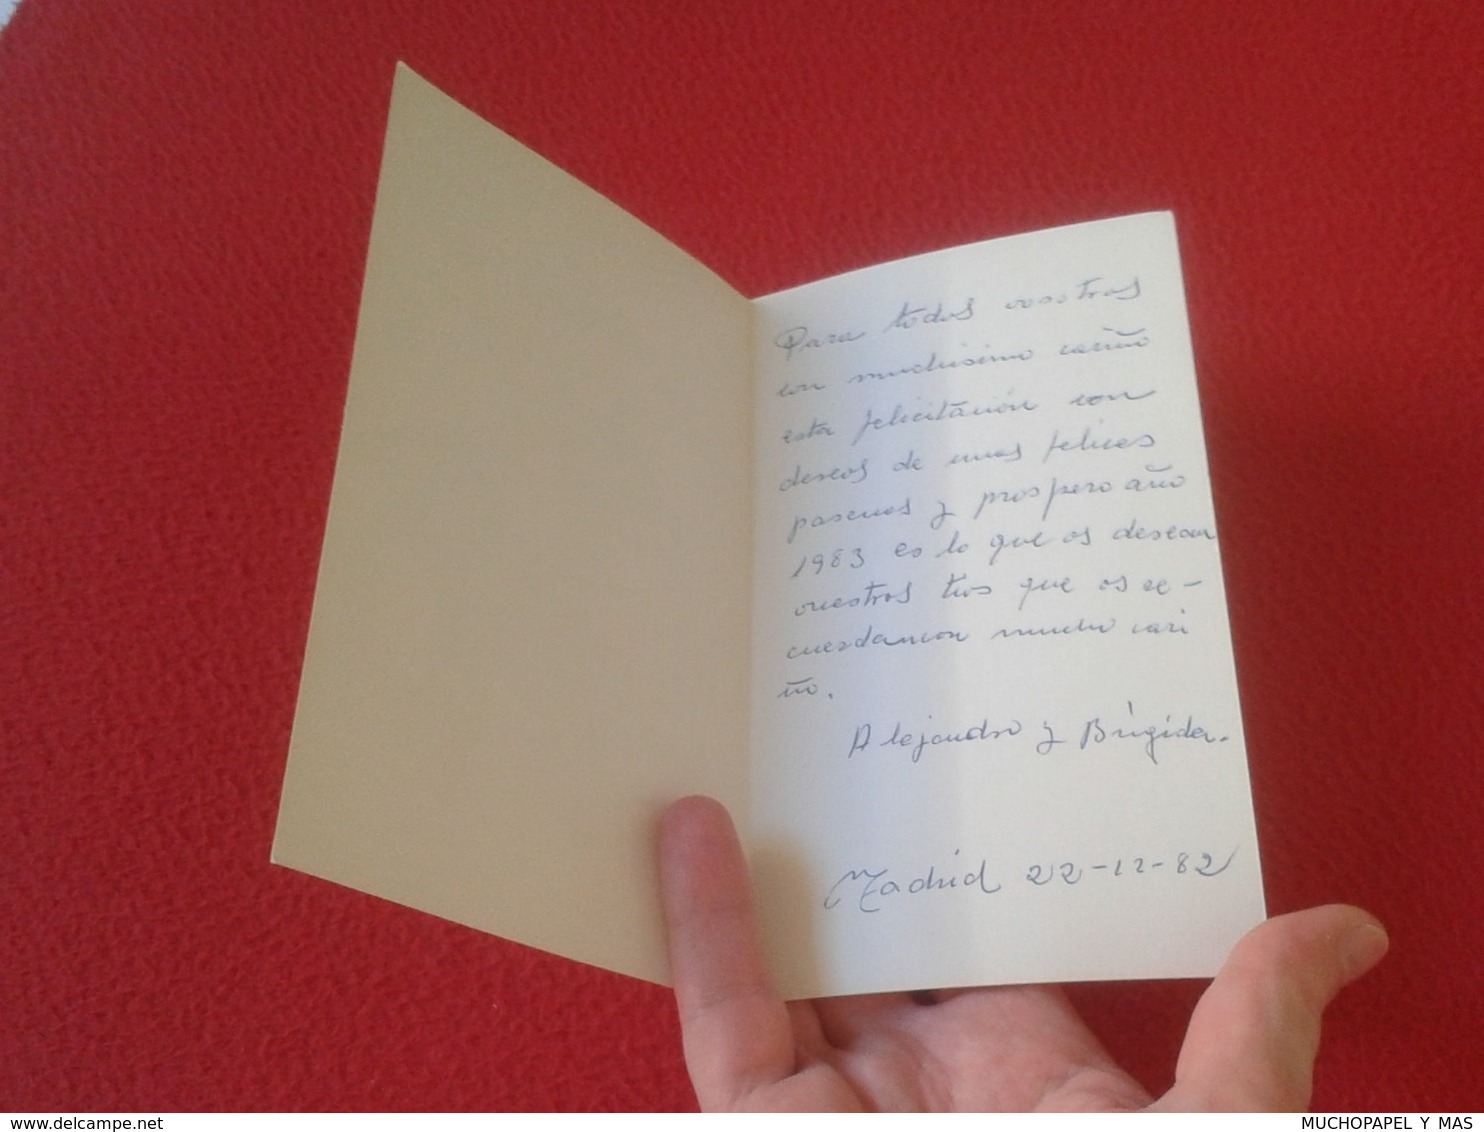 Para todos vosotros
con muchisimo cariño
esta felicitación con
deseos de unas felices
pascuas y prospero año
1983 es lo que os desean
vuestros tios que os re-
cuerdan con mucho cari
ño.
Alejandro y Brígida.
Madrid 22-12-82
www.delcampe.net
MUCHOPAPEL Y MAS